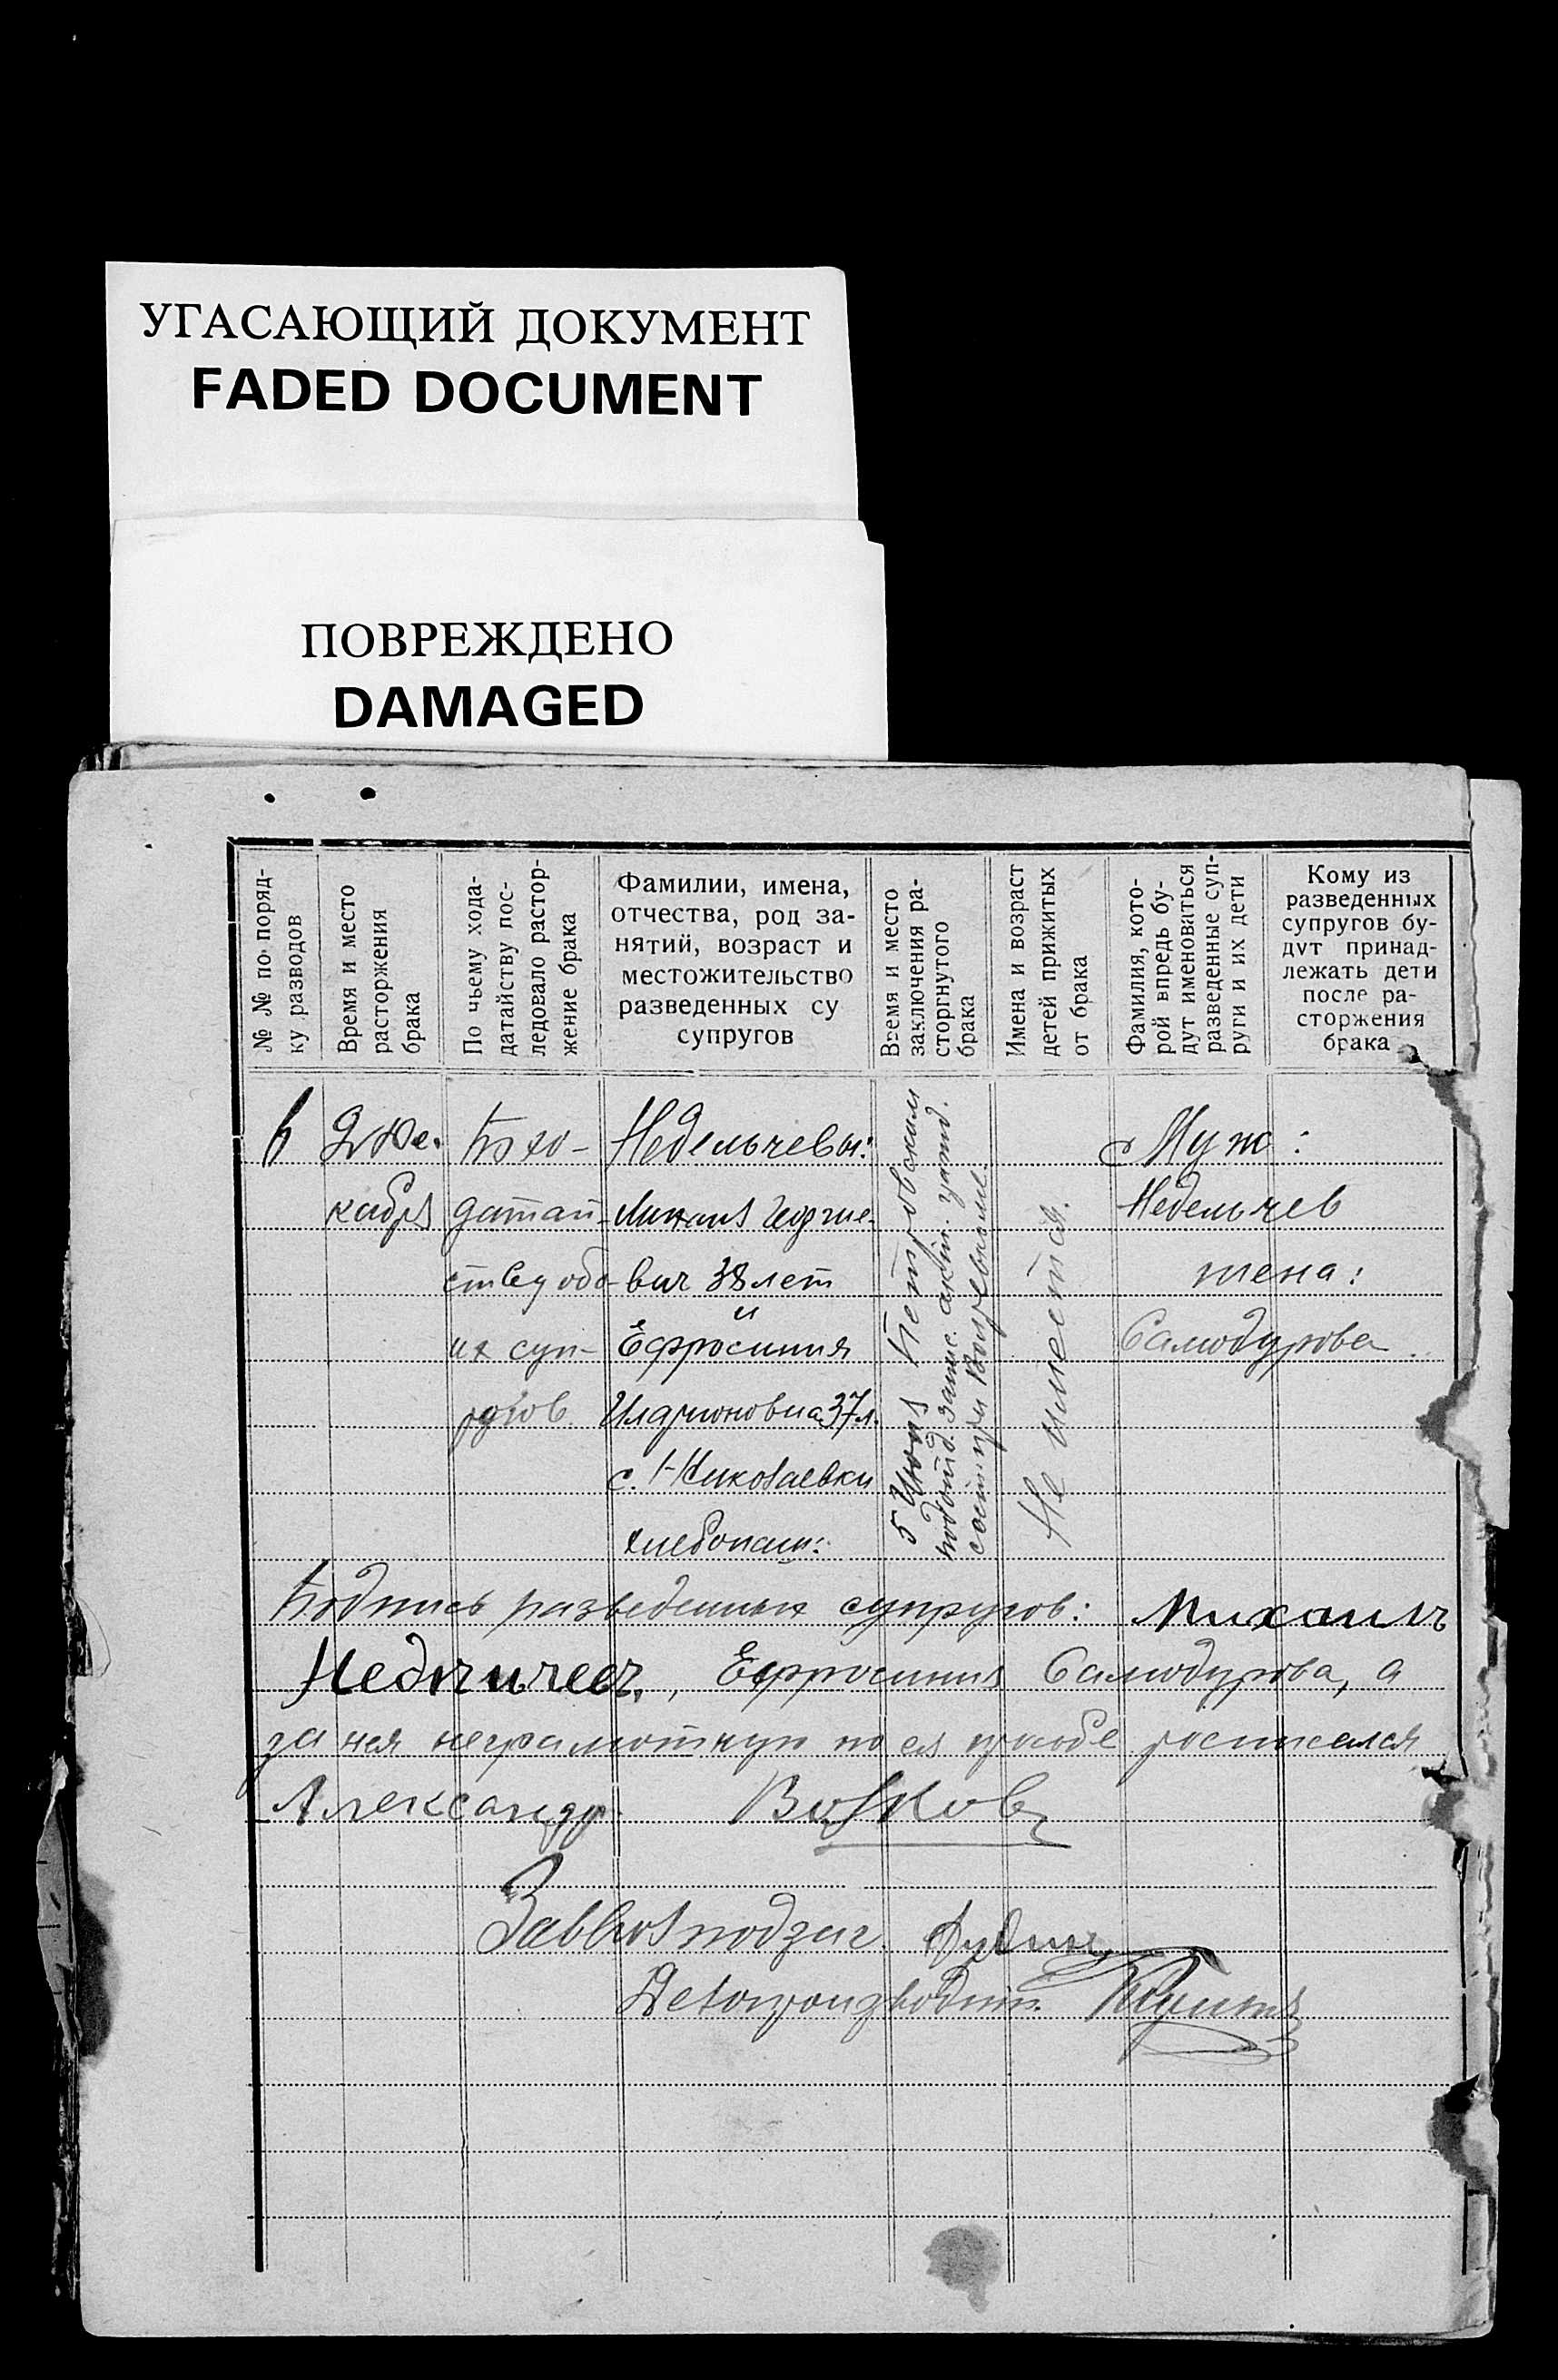 УГАСАЮЩИЙ ДОКУМЕНТ
FADED DOCUMENT
ПОВРЕЖДЕНО
DAMAGED
№ № по поряд-
ку разводов
Время и место
расторжения
брака
По чьему хода-
датайству пос-
ледовало растор-
жение брака
Фамилии, имена,
отчества, род за-
нятий, возраст и
местожительство
разведенных су
супругов
Время и место
заключения ра-
сторгнутого
брака
Имена и возраст
детей прижитых
от брака
Фамилия, кото-
рой впредь бу-
дут именоваться
разведенные суп-
руги и их дети
Кому из
разведенных
супругов бу-
дут принад-
лежать дети
после ра-
сторжения
брака
6
2 Де-
кабря
По хо-
датай-
ству обо-
их суп-
ругов
Недельчевы:
Михаил Георгие-
вич 38 лет
и
Ефросиния
Иларионовна 37 л.
с. Н-Николаевки
хлебопаш:
5 Июня Петровским
подотд. запис. актов. гражд.
состоян. при
Не имеется.
Муж:
Недельчев
жена:
Самодурова
Подпись разведенных супругов: Михаилъ
Недельчевъ, Ефросиния Самодурова, а
за нея неграмотную по ея просьбе росписался
Александр Волков
Завволподзаг.
Делопроизводит.